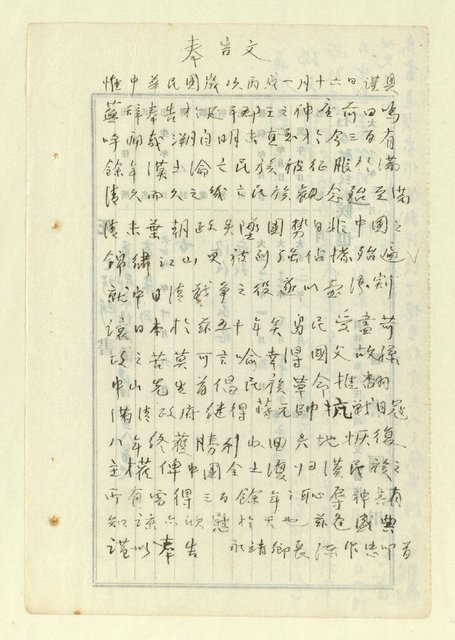 奉告文
惟中華民國歲次丙戌一月十六日謹具
蕪辭奉告於延平郡王之神座前曰嗚
呼痛哉溯自明末直至於今三百有
餘年漢土淪亡民族被征服於滿
清久而久之幾亡民族觀念殆至滿
清末葉朝政失墜國勢日非中國之
錦繡江山更被列強佔據殆遍
就中日清戰爭之役遂以臺灣割
讓日本於茲五十年矣島民受盡苛
政之苦莫可言喻幸得國父故孫
中山先生首倡民族革命推翻
滿清政府繼得蔣元帥抗戰日寇
八年終獲勝利收回失地恢復
主權俾中國全土復歸漢民族之
所有雪得三百餘年之恥辱神其有
知亦必欣慰於天也茲逢盛典
謹以奉告 永靖鄉長 作忠叩首